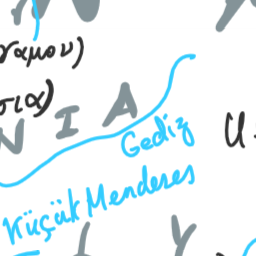 γαμου)
σια)
NIA
Gediz
Küçük Menderes